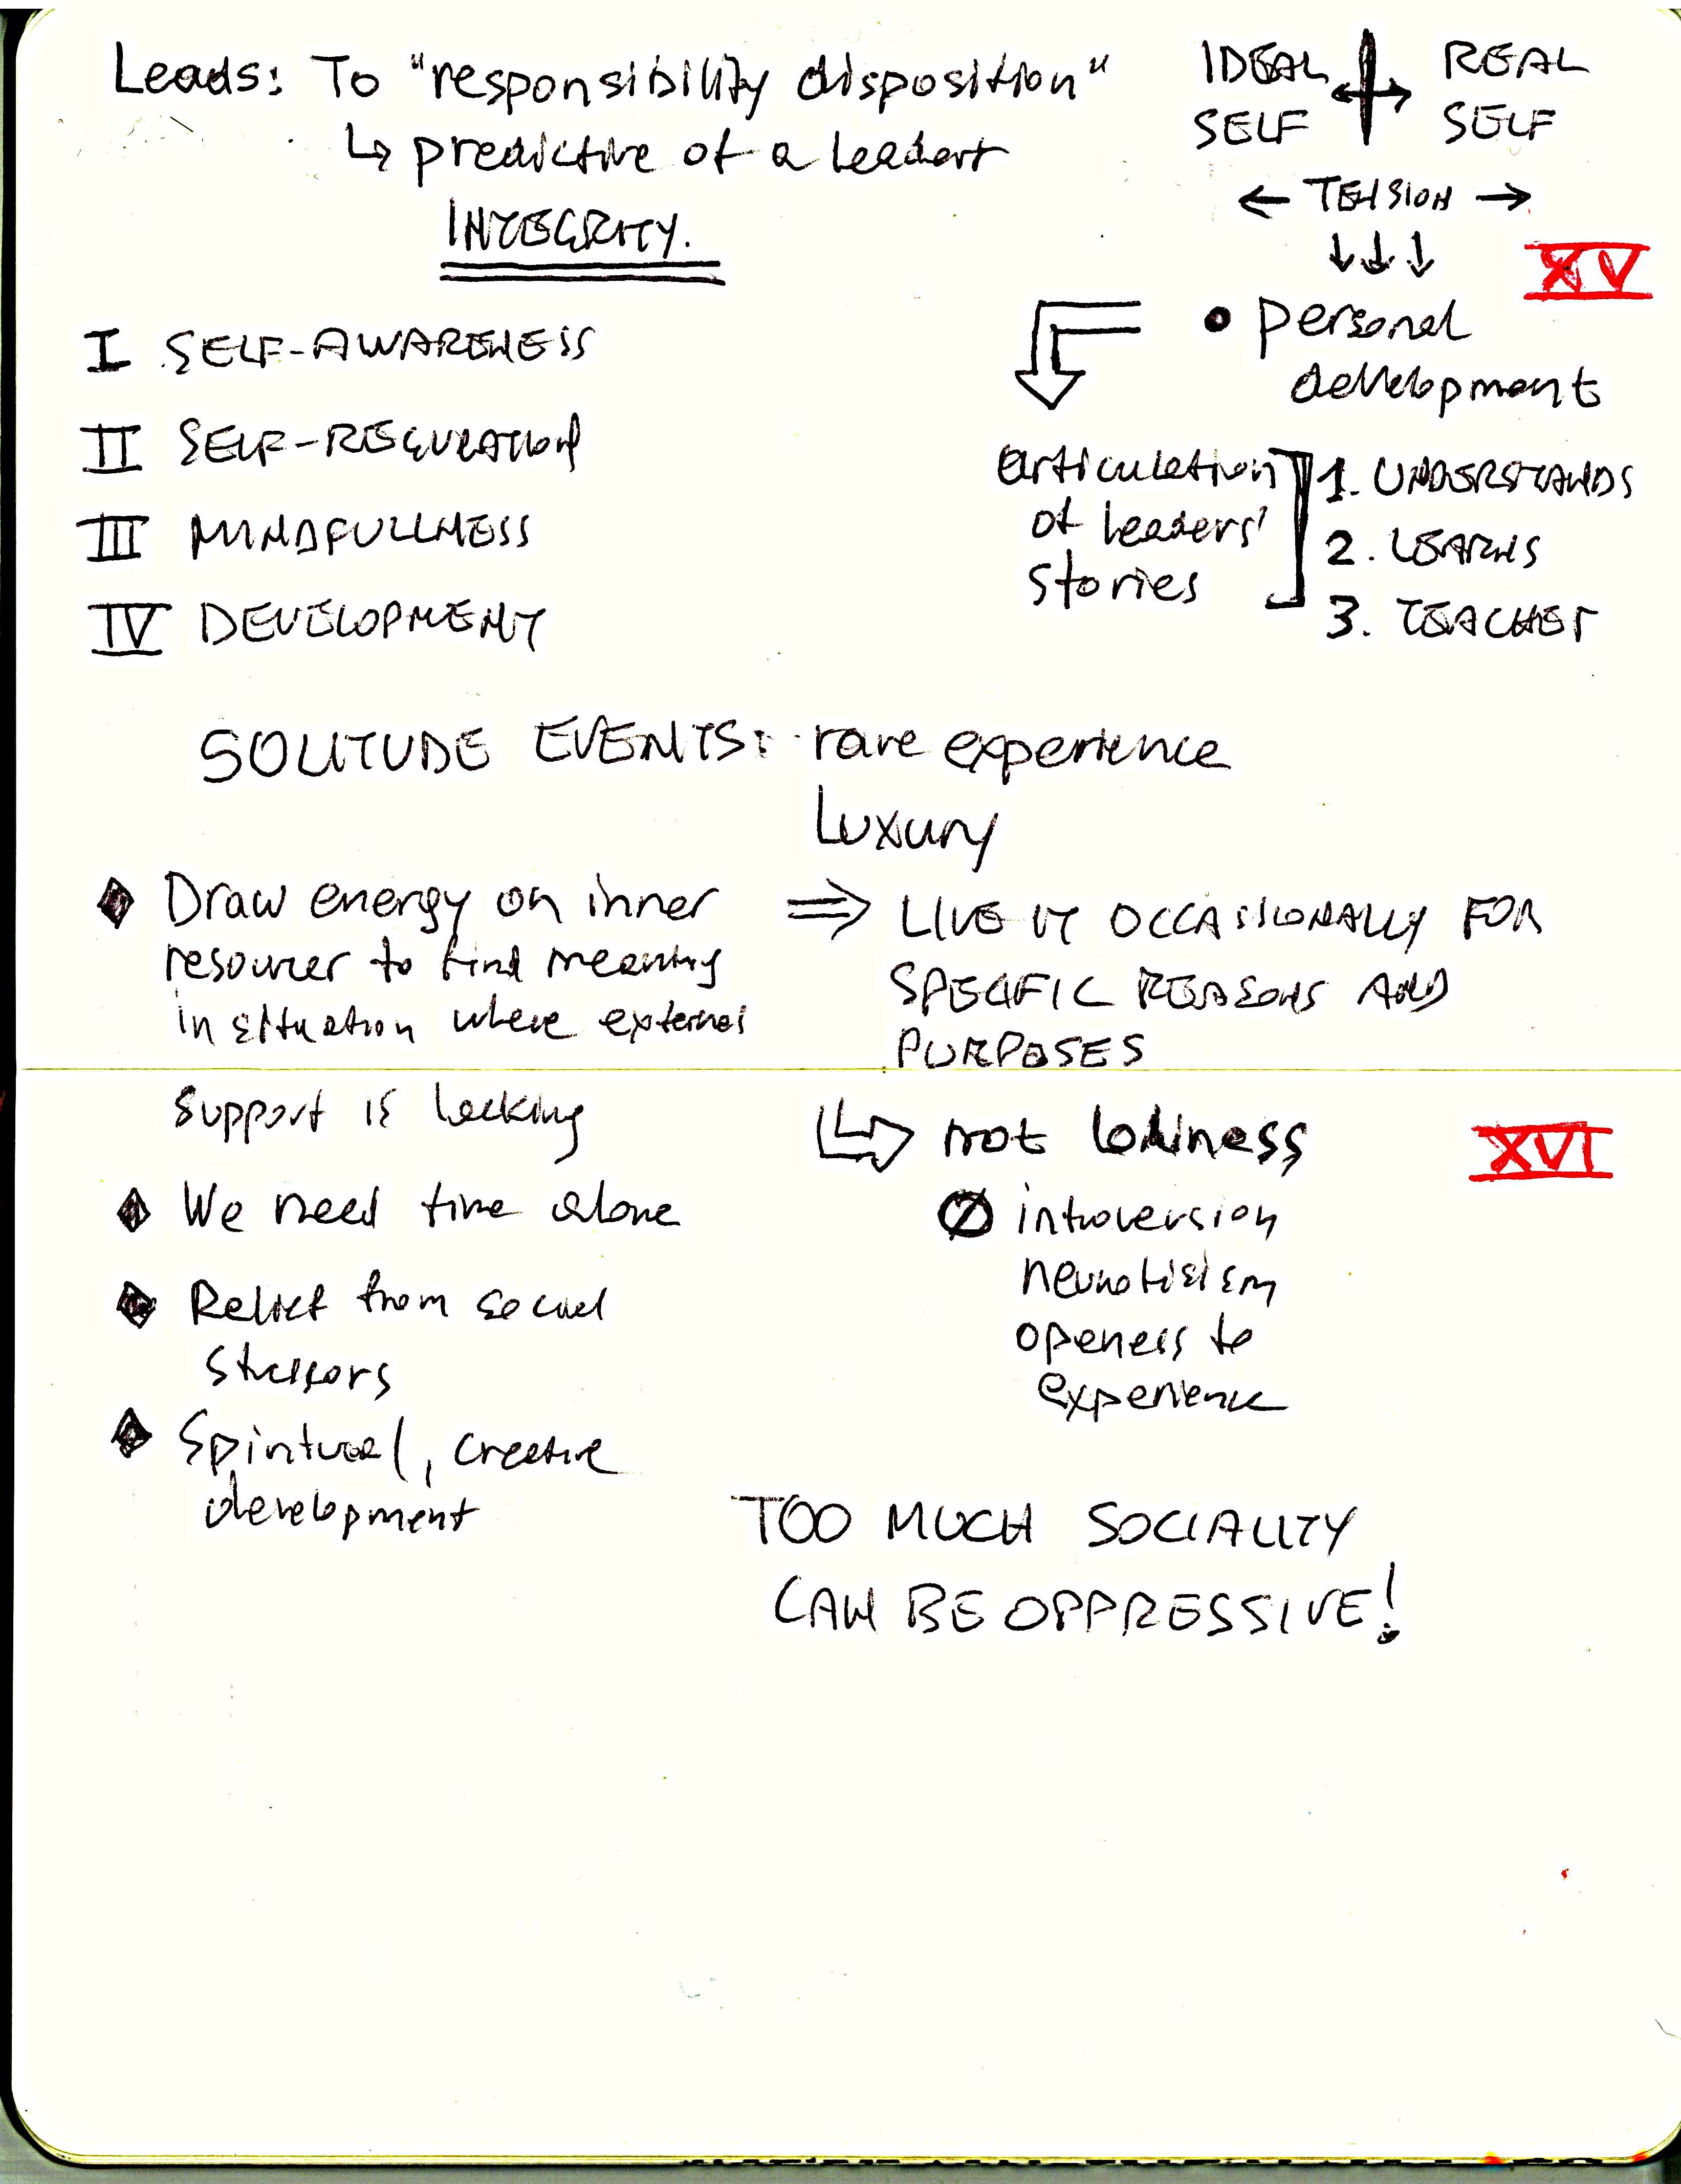 Leads: To "responsibility disposition"
↳ predictive of a leader
INTEGRITY.
I SELF-AWARENESS
II SELF-REGULATION
III MINDFULLNESS
IV DEVELOPMENT
IDEAL SELF ↔ REAL SELF
← TENSION →
↓↓↓
XV
• personal
development
articulation
of leaders'
stories
1. UNDERSTANDS
2. LEARNS
3. TEACHES
SOLITUDE EVENTS: rare experience
Luxury
◆ Draw energy on inner
resources to find meaning
in situation where external
support is lacking
◆ We need time alone
◆ Relief from social
stressors
◆ Spiritual, creative
development
⇒ LIVE IT OCCASSIONALLY FOR
SPECIFIC REASONS AND
PURPOSES
↳ not loliness
XVI
Ø introversion
neurotisism
openess to
experience
TOO MUCH SOCIALITY
CAN BE OPPRESSIVE!